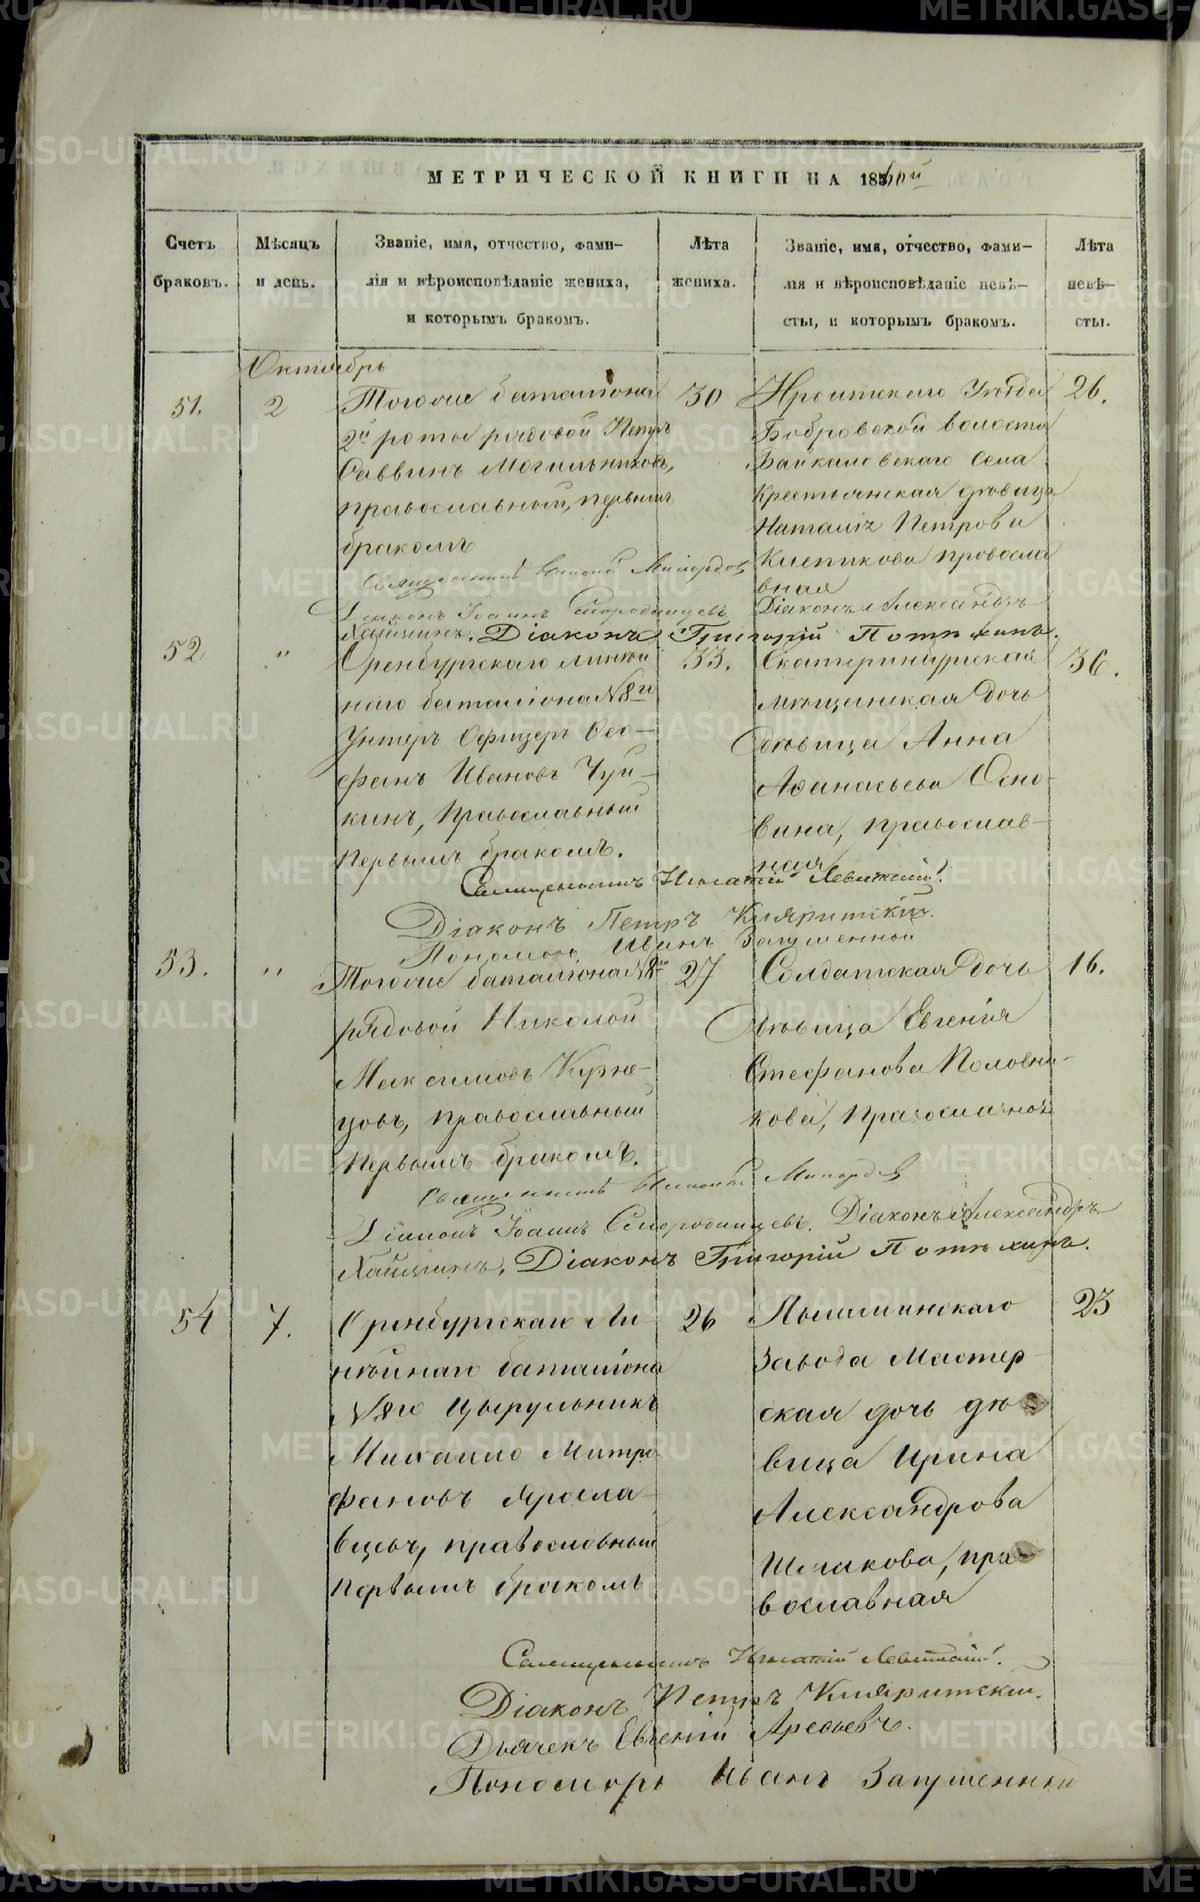 МЕТРИЧЕСКОЙ КНИГИ НА 1860й
Счетъ браковъ.
Мѣсяцъ и день.
Званіе, имя, отчество, фами-
лія и вѣроисповѣданіе жениха,
и которымъ бракомъ.
Лѣта жениха.
Званіе, имя, отчество, фами-
лія и вѣроисповѣданіе невѣ-
сты, и которымъ бракомъ.
Лѣта невѣ-
сты.
Октябрь
51.
2
Тогоже баталіона
2й роты рядовой Петръ
Саввинъ Могильниковъ,
православный, первымъ
бракомъ
30
Ирбитскаго Уѣзда
Бобровской волости
Байкаловскаго села
крестьянская дѣвица
Наталія Петрова
Клепикова правосла
вная
26.
Священникъ Милордовъ
Діаконъ Іоаннъ Смородинцевъ. Діаконъ Александръ
Діаконъ Григорій Потѣхинъ.
52
"
Оренбургскаго линѣй
наго баталіона №8го
Унтеръ Офицеръ Ѳео-
фанъ Ивановъ Чуп-
кинъ, Православный
Первымъ бракомъ.
33.
Екатеринбургская
мѣщанская дочь
дѣвица Анна
Аѳанасьева Осно-
вина, православ-
ная
36.
Священникъ Игнатій Левитскій.
Діаконъ Петръ Кляритскій.
Пономарь Иванъ Загуменный
53.
"
Тогоже баталіона №8го
рядовой Николай
Максимовъ Курне-
цовъ, православный
Первымъ бракомъ.
27
Солдатская дочь
дѣвица Евгенія
Стефанова Половни-
кова, Православная
16.
Священникъ Милордовъ
Діаконъ Іоаннъ Смородинцевъ. Діаконъ Александръ
Діаконъ Григорій Потѣхинъ.
54
7.
Оренбургскаго Ли
нѣйнаго баталіона
№8го Цырульникъ
Михаило Митро
фановъ Яросла-
вцевъ, православный
Первымъ бракомъ
26
Пышминскаго
Завода Мастер-
ская дочь дѣ-
вица Ирина
Александрова
Шмакова, пра-
вославная
23
Священникъ Игнатій Левитскій.
Діаконъ Петръ Кляритскій.
Дьячекъ Евгеній Арефьевъ.
Пономарь Иванъ Загуменный
METRIKI.GASO-URAL.RU